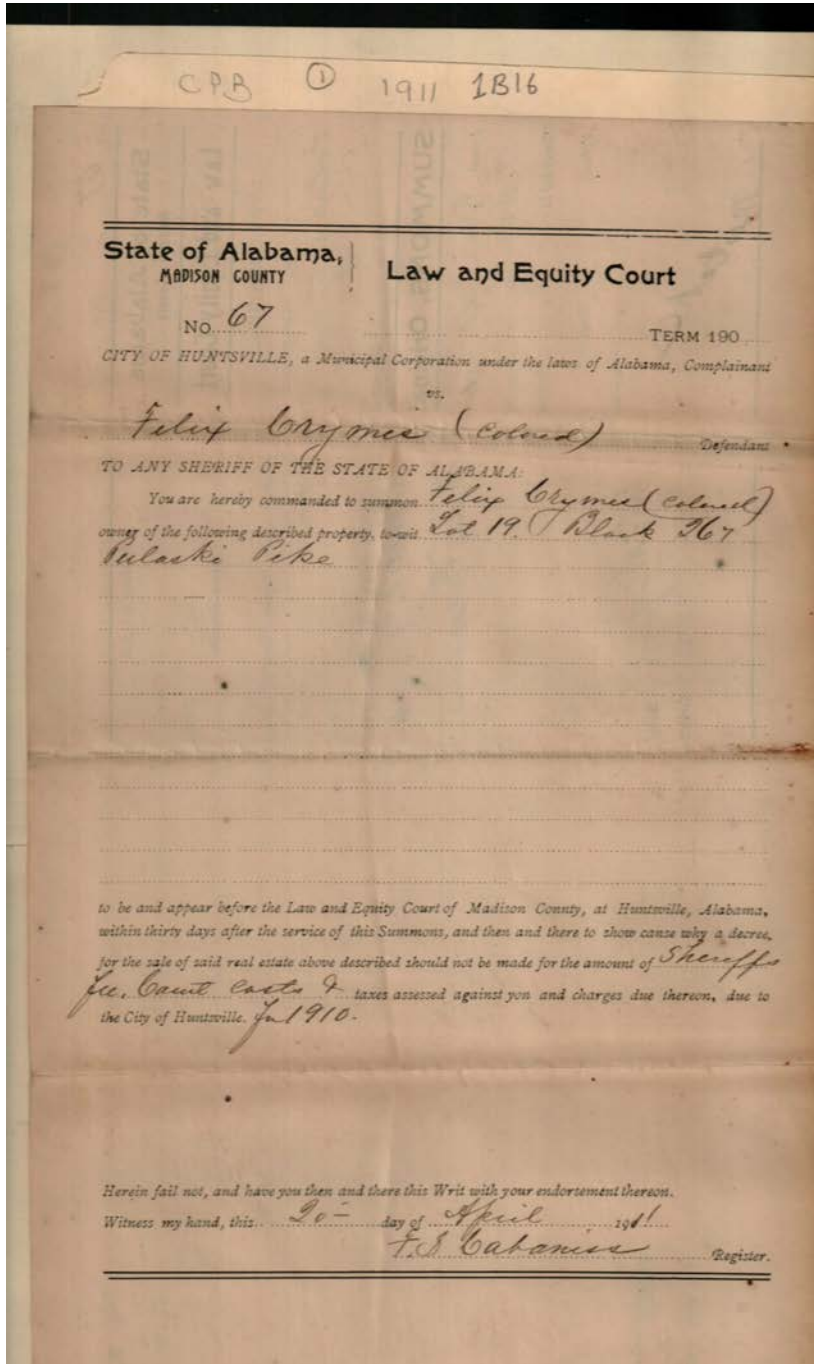 CPB ① 1911 1B16
State of Alabama, Law and Equity Court
MADISON COUNTY
No. 67 TERM 190
CITY OF HUNTSVILLE, a Municipal Corporation under the laws of Alabama, Complainant
vs.
Felix Crymes (Colored) Defendant
TO ANY SHERIFF OF THE STATE OF ALABAMA:
You are hereby commanded to summon Felix Crymes (Colored)
owner of the following described property, to-wit Lot 19. Block 267
Pulaski Pike
to be and appear before the Law and Equity Court of Madison County, at Huntsville, Alabama,
within thirty days after the service of this Summons, and then and there to show cause why a decree,
for the sale of said real estate above described should not be made for the amount of Sheriffs
fee, Court Costs & taxes assessed against you and charges due thereon, due to
the City of Huntsville. for 1910.
Herein fail not, and have you then and there this Writ with your endorsement thereon.
Witness my hand, this 20 day of April 1911
Cabaniss Register.